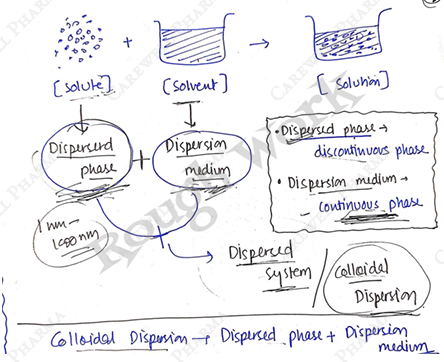 + →
[Solute] [Solvent] [Solution]
Dispersed
phase
+
Dispersion
medium
• Dispersed phase →
discontinuous phase
• Dispersion medium →
continuous phase
1 nm -
1000 nm
Dispersed
system
/
Colloidal
Dispersion
Colloidal Dispersion → Dispersed phase + Dispersion
medium
Rough work